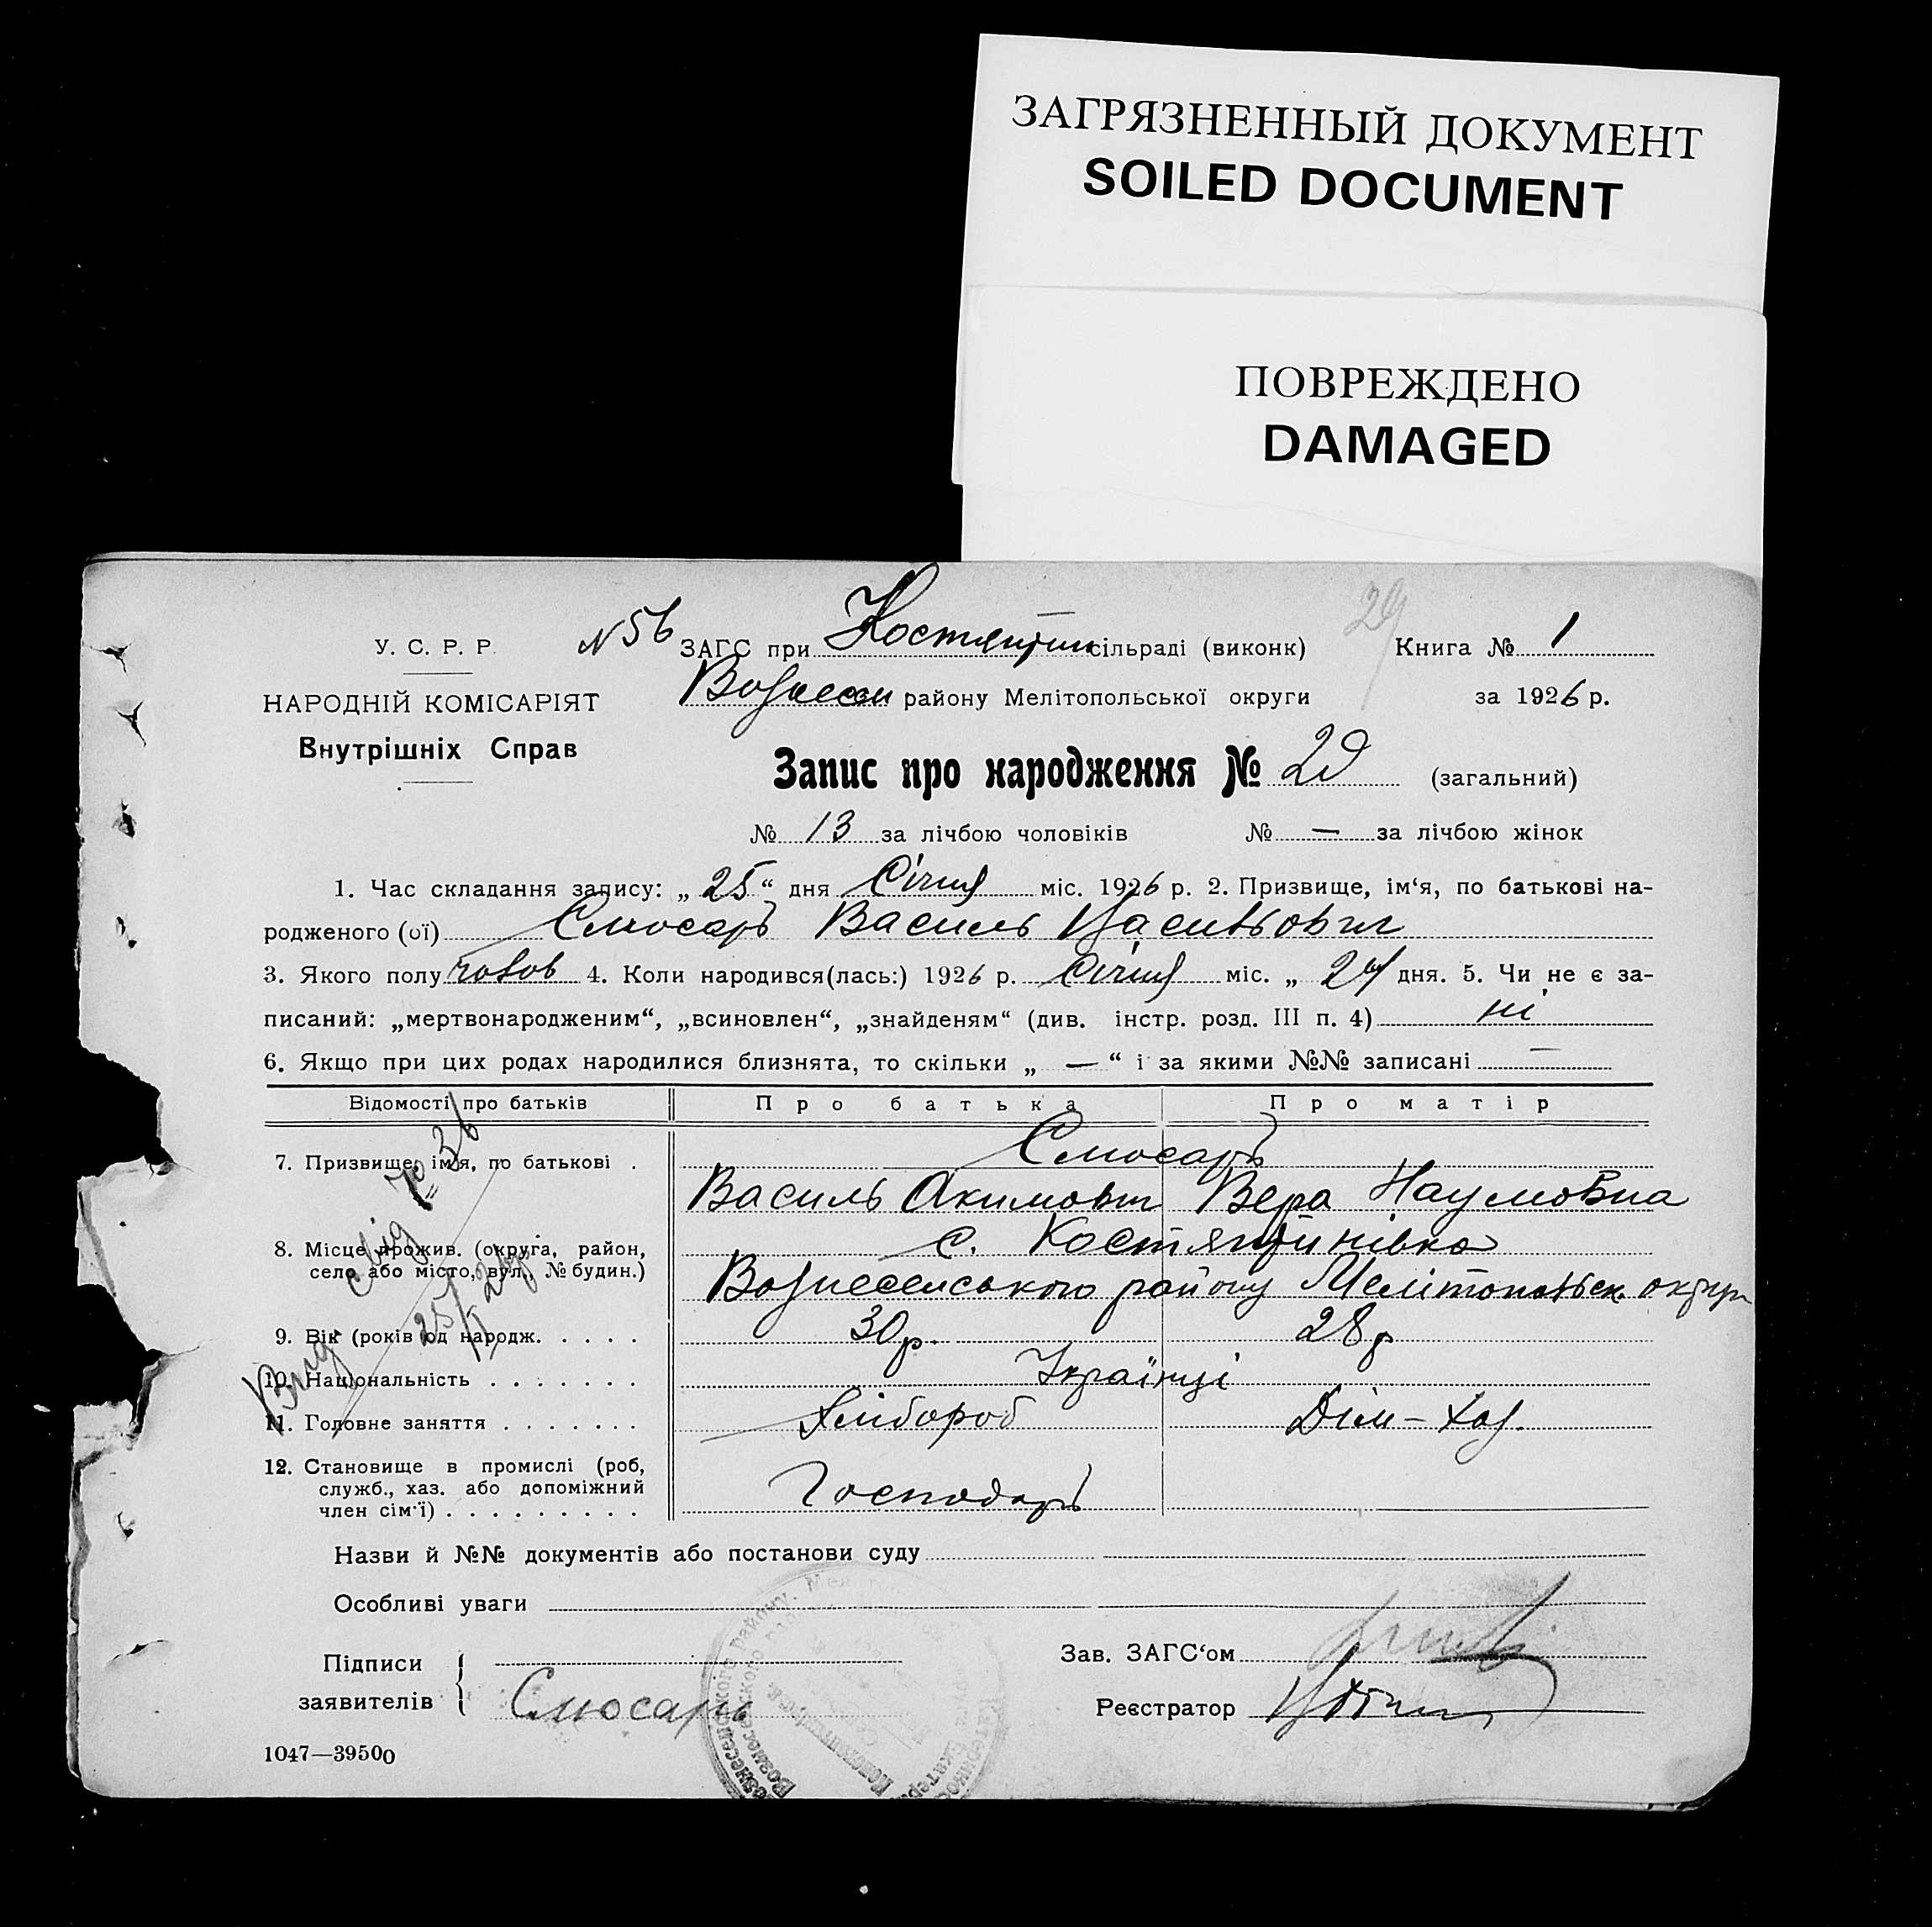 ЗАГРЯЗНЕННЫЙ ДОКУМЕНТ
SOILED DOCUMENT
ПОВРЕЖДЕНО
DAMAGED
У. С. Р. Р.
НАРОДНІЙ КОМІСАРІЯТ
Внутрішніх Справ
N 56 ЗАГС при Костянтин сільраді (виконк)
29
Книга № 1
Вознесен району Мелітопольської округи
за 1926 р.
Запис про народження № 29 (загальний)
№ 13 за лічбою чоловіків № — за лічбою жінок
1. Час складання запису: „ 25 “ дня Січня міс. 1926 р. 2. Призвище, ім‘я, по батькові на-
родженого (ої) Слюсарь Василь Васильович
3. Якого полу чолов 4. Коли народився(лась:) 1926 р. Січня міс. „ 24 дня. 5. Чи не є за-
писаний: „мертвонародженим“, „всиновлен“, „знайденям“ (див. інстр. розд. III п. 4) ні
6. Якщо при цих родах народилися близнята, то скільки „ — “ і за якими №№ записані —
Відомості про батьків Про батька Про матір
Слюсарь
7. Призвище, ім‘я, по батькові .
Василь Акимович Вера Наумовна
8. Місце прожив. (округа, район,
село або місто, вул., № будин.)
с. Костянтинівка
Вознесенського району Мелітопольск округи
9. Вік (років од народж. . . . . 30 р. 28 р
10. Національність . . . . . . . Українці
11. Головне заняття . . . . . . . Хлібороб Дім – хаз.
12. Становище в промислі (роб,
служб., хаз. або допоміжний
член сім‘ї) . . . . . . . . . Господарь
Вид свід № 36
25/I 26 р
Назви й №№ документів або постанови суду
Особливі уваги
Підписи
заявителів
Слюсарь
Зав. ЗАГС‘ом
Реєстратор
1047—39500